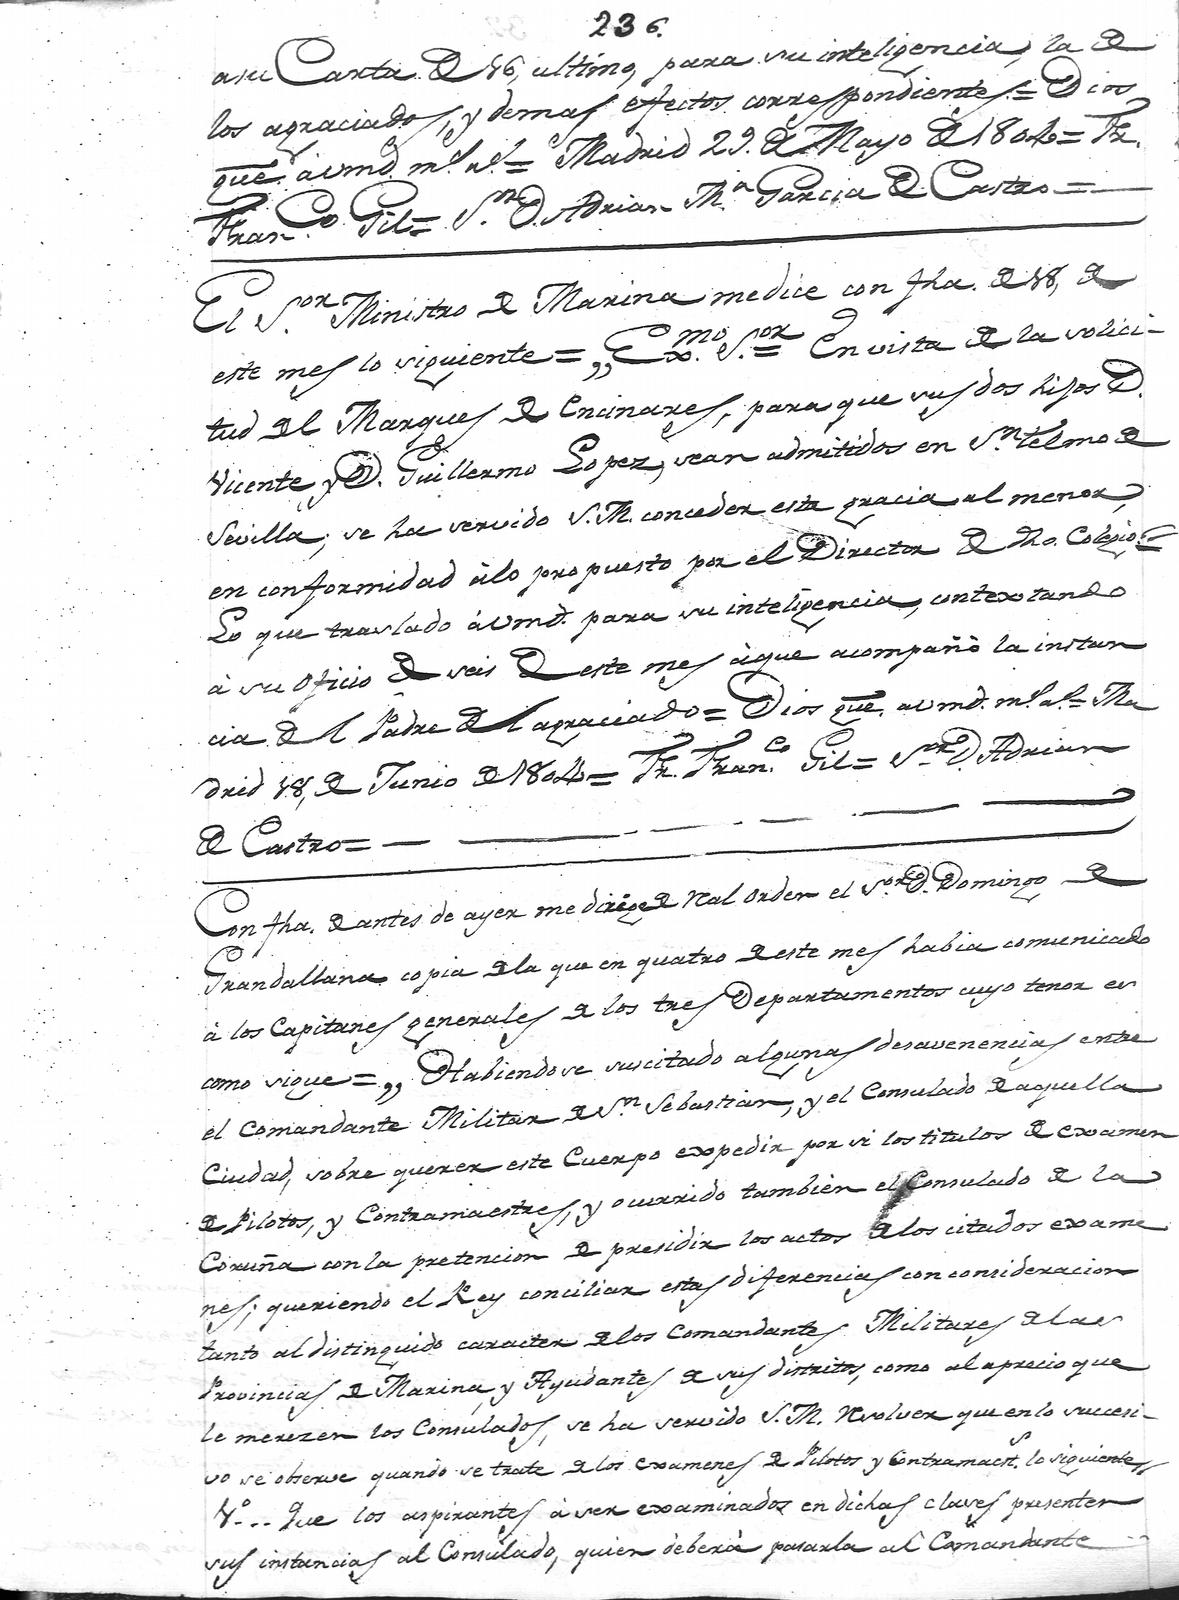 236.
a su Carta de 16, ultimo, para su inteligencia, la de
los agraciados, y demas efectos correspondientes.= Dios
gue. à vmd. ms. as.= Madrid 29. de Mayo de 1804= Fr.
Fran.co Gil= S.or D. Adrian M.a Garcia de Castro=
El S.or Ministro de Marina me dice con fha. de 18, de
este mes lo siguiente= „Exmo. S.or= En vista de la solici-
tud del Marques de Encinares, para que sus dos hijos D.
Vicente y D. Guillermo Lopez, sean admitidos en S.n Telmo de
Sevilla, se ha servido S.M. conceder esta gracia al menor,
en conformidad àlo propuesto por el Director de dho. Colegio.=
Lo que traslado à vmd. para su inteligencia, contextando
à su Oficio de seis de este mes àque acompañò la instan
cia del Padre del agraciado= Dios gue. a vmd. ms. as.= Ma
drid 18, de Junio de 1804= Fr. Fran.co Gil= S.or D. Adrian
de Castro=
Con fha. de antes de ayer me dirige de Real orden el S.or D. Domingo de
Grandallana copia de la que en quatro de este mes habia comunicado
à los Capitanes generales de los tres Departamentos cuyo tenor es
como sigue= „Habiendose suscitado algunas desavenencias entre
el Comandante Militar de S.n Sebastian, y el Consulado de aquella
Ciudad, sobre querer este Cuerpo expedir por si los titulos de examen
de Pilotos, y Contramaestres, y ocurrido tambien el Consulado de la
Coruña con la pretencion de presidir los actos de los citados exame
nes; queriendo el Rey conciliar estas diferencias con consideracion
tanto al distinguido caracter de los Comandantes Militares de las
Provincias de Marina, y Ayudantes de sus distritos, como al aprecio que
le merezen los Consulados, se ha servido S.M. resolver que en lo succesi-
vo se observe quando se trate de los examenes de Pilotos y Contramaest.s lo siguiente
1.o... Que los aspirantes à ser examinados en dichas clases presenten
sus instancias al Consulado, quien deberà pasarla al Comandante